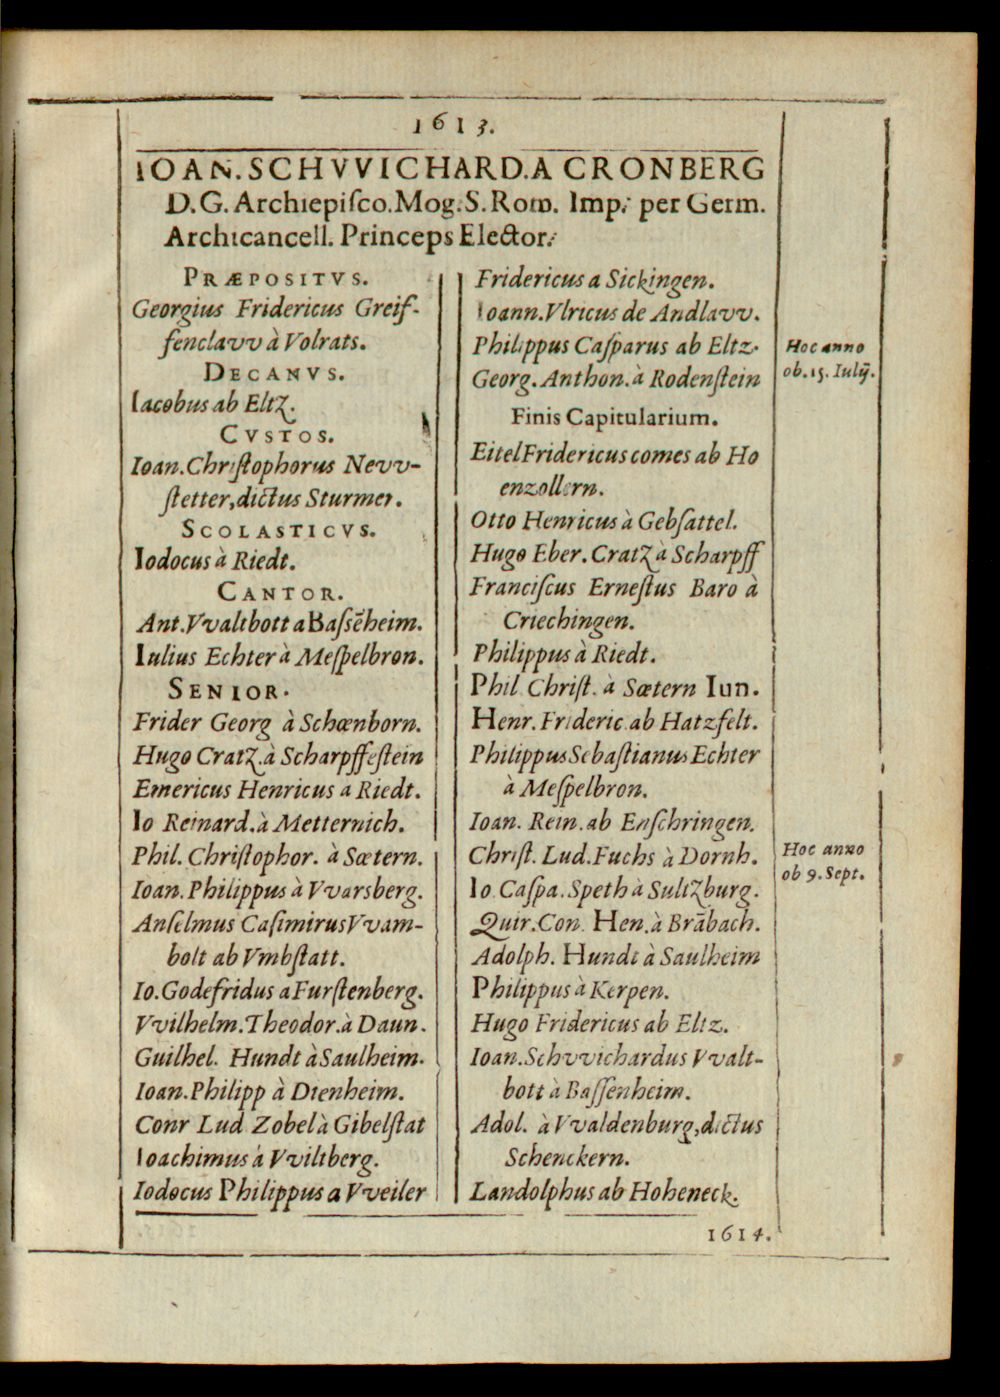 1613.
IOAN. SCHVVICHARD. A CRONBERG
D. G. Archiepiſco. Mog. S. Rom. Imp. per Germ.
Archicancell. Princeps Elector.
PRÆPOSITVS.
Georgius Fridericus Greif-
fenclavv à Volrats.
DECANVS.
Iacobus ab Eltz.
CVSTOS.
Ioan. Chriſtophorus Nevv-
ſtetter, dictus Sturmer.
SCOLASTICVS.
Iodocus à Riedt.
CANTOR.
Ant. Vvaltbott a Baſsēheim.
Iulius Echter à Meſpelbron.
SENIOR.
Frider Georg à Schœnborn.
Hugo Cratz. à Scharpffeſtein
Emericus Henricus a Riedt.
Io Reinard. à Metternich.
Phil. Chriſtophor. à Sœtern.
Ioan. Philippus à Vvarsberg.
Anſelmus Caſimirus Vvam-
bolt ab Vmbſtatt.
Io. Godefridus a Furſtenberg.
Vvilhelm. Theodor. à Daun.
Guilhel. Hundt à Saulheim.
Ioan. Philipp à Dienheim.
Conr Lud Zobel à Gibelſtat
Ioachimus à Vviltberg.
Iodocus Philippus a Vveiler
Fridericus a Sickingen.
Ioann. Vlricus de Andlavv.
Philippus Caſparus ab Eltz.
Georg. Anthon. à Rodenſtein
Finis Capitularium.
Eitel Fridericus comes ab Ho
enzollern.
Otto Henricus à Gebſattel.
Hugo Eber. Cratz à Scharpff
Franciſcus Erneſtus Baro à
Criechingen.
Philippus à Riedt.
Phil Chriſt. à Sœtern Iun.
Henr. Frideric. ab Hatzfelt.
Philippus Sebaſtianus Echter
à Meſpelbron.
Ioan. Rein. ab Enſchringen.
Chriſt. Lud. Fuchs à Dornh.
Io Caſpa. Speth à Sultzburg.
Quir. Con. Hen. à Brābach.
Adolph. Hundt à Saulheim
Philippus à Kerpen.
Hugo Fridericus ab Eltz.
Ioan. Schvvichardus Vvalt-
bott à Baſſenheim.
Adol. à Vvaldenburg, dictus
Schenckern.
Landolphus ab Hoheneck.
Hoc anno
ob. 15. Iulÿ.
Hoc anno
ob 9. Sept.
1614.